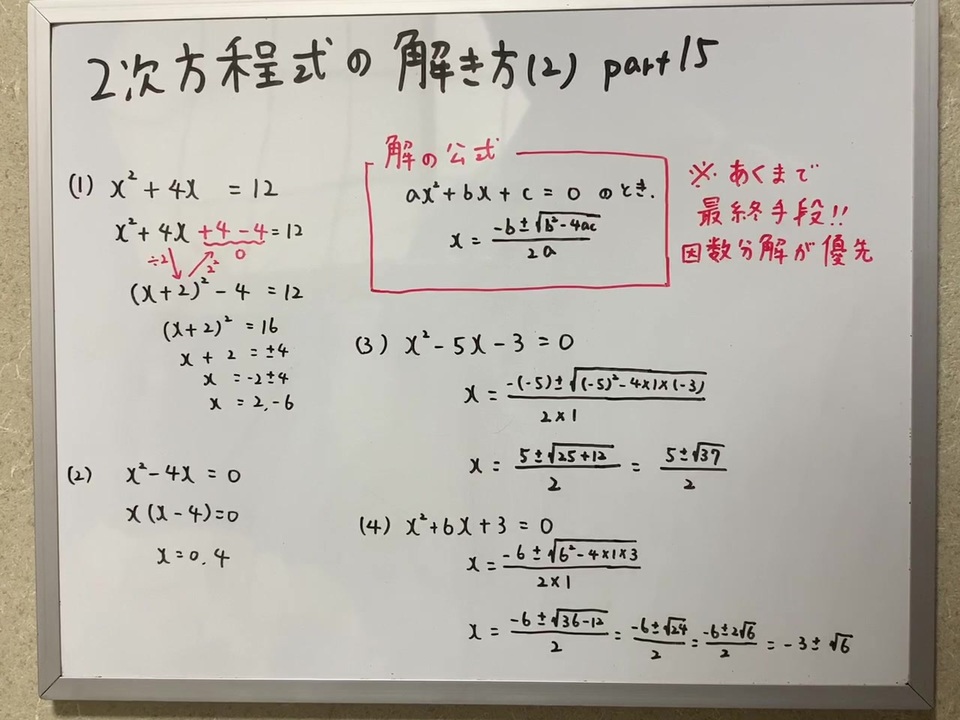 2次方程式の解き方(2) part15
(1) x² + 4x = 12
x² + 4x +4 -4 = 12
÷2 2² 0
(x+2)² - 4 = 12
(x+2)² = 16
x + 2 = ±4
x = -2±4
x = 2, -6
(2) x² - 4x = 0
x(x-4)=0
x=0, 4
解の公式
ax² + bx + c = 0 のとき.
x = (-b±√(b²-4ac))/(2a)
※あくまで
最終手段!!
因数分解が優先
(3) x² - 5x - 3 = 0
x = (-(-5)±√((-5)²-4×1×(-3)))/(2×1)
x = (5±√(25+12))/2 = (5±√37)/2
(4) x²+6x+3 = 0
x = (-6±√(6²-4×1×3))/(2×1)
x = (-6±√(36-12))/2 = (-6±√24)/2 = (-6±2√6)/2 = -3±√6